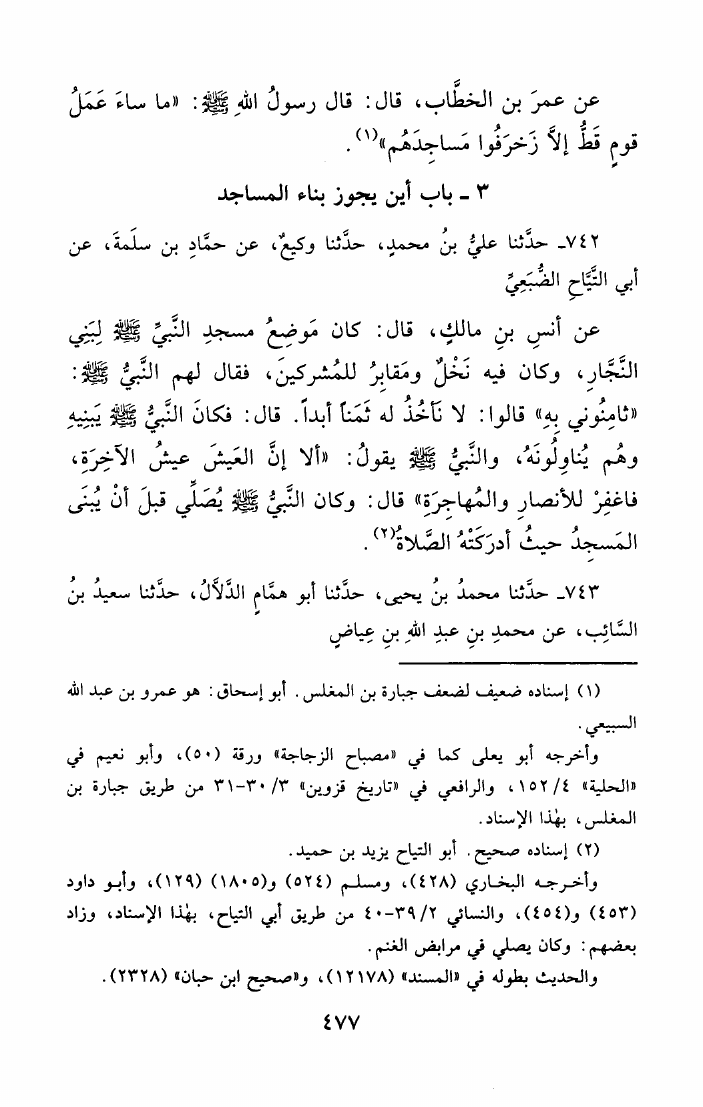 عن عمرَ بن الخطَّاب، قال: قال رسولُ اللهِ ﷺ: «ما ساءَ عَمَلُ
قومٍ قَطُّ إلاَّ زَخرَفُوا مَساجِدَهُم»(١).
٣ ـ باب أين يجوز بناء المساجد
٧٤٢ـ حدَّثنا عليُّ بنُ محمدٍ، حدَّثنا وكيعٌ، عن حمَّادِ بن سلَمةَ، عن
أبي التَّيَّاحِ الضُّبَعِيِّ
عن أنسِ بنِ مالكٍ، قال: كان مَوضِعُ مسجدِ النَّبيِّ ﷺ لِبَنِي
النَّجَّارِ، وكان فيه نَخْلٌ ومَقابِرُ للمُشركينَ، فقال لهم النَّبيُّ ﷺ:
«ثامِنُوني بِهِ» قالوا: لا نَأخُذُ له ثَمَناً أبداً. قال: فكانَ النَّبيُّ ﷺ يَبنِيهِ
وهُم يُناوِلُونَهُ، والنَّبيُّ ﷺ يقولُ: «ألا إنَّ العَيشَ عيشُ الآخِرَةِ،
فاغفِرْ للأنصارِ والمُهاجِرَةِ» قال: وكان النَّبيُّ ﷺ يُصَلِّي قبلَ أنْ يُبنَى
المَسجِدُ حيثُ أدرَكَتْهُ الصَّلاةُ(٢).
٧٤٣ـ حدَّثنا محمدُ بنُ يحيى، حدَّثنا أبو همَّامٍ الدَّلاَّلُ، حدَّثنا سعيدُ بنُ
السَّائِب، عن محمدِ بنِ عبدِ اللهِ بنِ عِياضٍ
(١) إسناده ضعيف لضعف جبارة بن المغلس. أبو إسحاق: هو عمرو بن عبد الله
السبيعي.
وأخرجه أبو يعلى كما في «مصباح الزجاجة» ورقة (٥٠)، وأبو نعيم في
«الحلية» ٤/ ١٥٢، والرافعي في «تاريخ قزوين» ٣/ ٣٠-٣١ من طريق جبارة بن
المغلس، بهٰذا الإسناد.
(٢) إسناده صحيح. أبو التياح يزيد بن حميد.
وأخرجه البخاري (٤٢٨)، ومسلم (٥٢٤) و(١٨٠٥) (١٢٩)، وأبو داود
(٤٥٣) و(٤٥٤)، والنسائي ٢/ ٣٩-٤٠ من طريق أبي التياح، بهٰذا الإسناد، وزاد
بعضهم: وكان يصلي في مرابض الغنم.
والحديث بطوله في «المسند» (١٢١٧٨)، و«صحيح ابن حبان» (٢٣٢٨).
٤٧٧